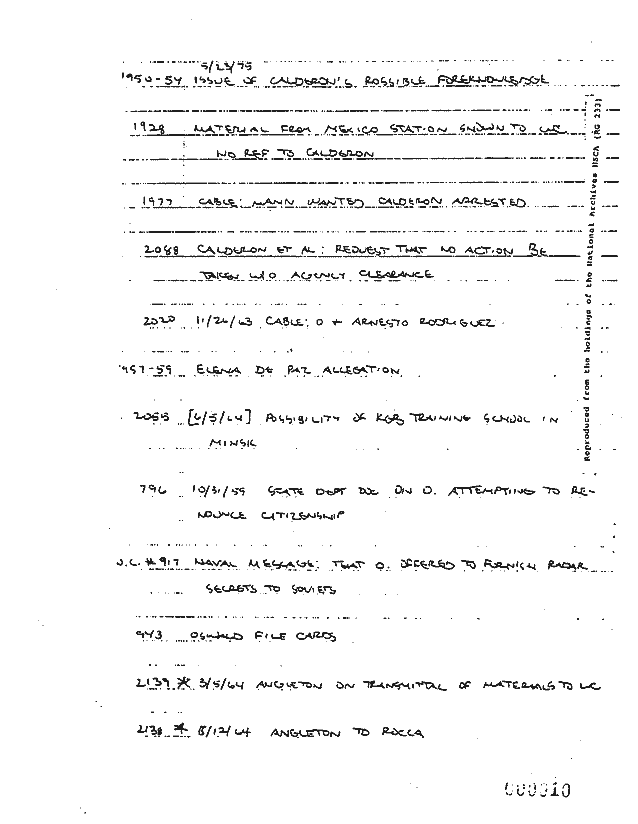 5/23/75
1950-54 ISSUE OF CALDERON'S POSSIBLE FOREKNOWLEDGE
1928 MATERIAL FROM MEXICO STATION SHOWN TO WC
NO REF TO CALDERON
1977 CABLE: MANN WANTED CALDERON ARRESTED
2048 CALDERON ET AL: REQUEST THAT NO ACTION BE
TAKEN W/O AGENCY CLEARANCE
2020 11/26/63 CABLE: O + ARNESTO RODRIGUEZ
1957-59 ELENA DE PAZ ALLEGATION
2055 [6/5/64] POSSIBILITY OF KGB TRAINING SCHOOL IN
MINSK
796 10/31/59 STATE DEPT DOC ON O. ATTEMPTING TO RE-
NOUNCE CITIZENSHIP
W.C. #917 NAVAL MESSAGE: THAT O. OFFERED TO FURNISH RADAR
SECRETS TO SOVIETS
943 OSWALD FILE CARDS
2139 * 3/5/64 ANGLETON ON TRANSMITTAL OF MATERIALS TO WC
2138 * 8/12/64 ANGLETON TO ROCCA
000010
Reproduced from the holdings of the National Archives HSCA (RG 233)